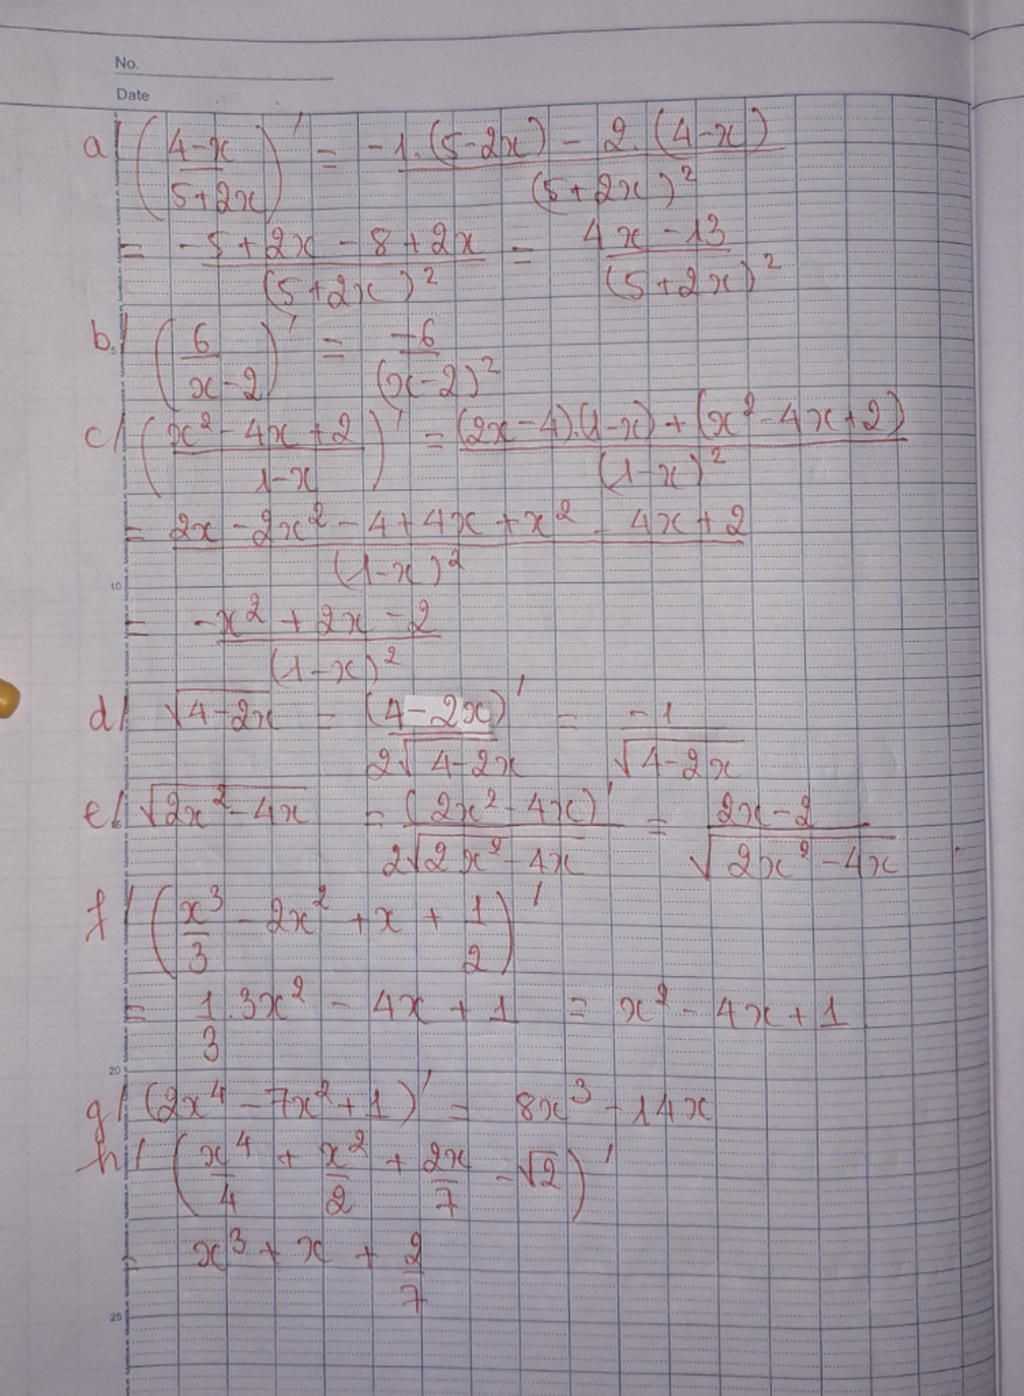 No.
Date
a/ ((4-x)/(5+2x))' = (-1.(5-2x) - 2.(4-x))/(5+2x)²
= (-5+2x-8+2x)/(5+2x)² = (4x-13)/(5+2x)²
b/ (6/(x-2))' = -6/(x-2)²
c/ ((x²-4x+2)/(1-x))' = ((2x-4).(1-x)+(x²-4x+2))/(1-x)²
= (2x-2x²-4+4x+x²-4x+2)/(1-x)²
= (-x²+2x-2)/(1-x)²
d/ √(4-2x) = (4-2x)'/(2√(4-2x)) = -1/√(4-2x)
e/ √(2x²-4x) = (2x²-4x)'/(2√(2x²-4x)) = (2x-2)/√(2x²-4x)
f/ (x³/3 - 2x² + x + 1/2)'
= 1/3.3x² - 4x + 1 = x² - 4x + 1
g/ (2x⁴ - 7x² + 1)' = 8x³ - 14x
h/ (x⁴/4 + x²/2 + 2x/7 - √2)'
= x³ + x + 2/7
5
10
20
25